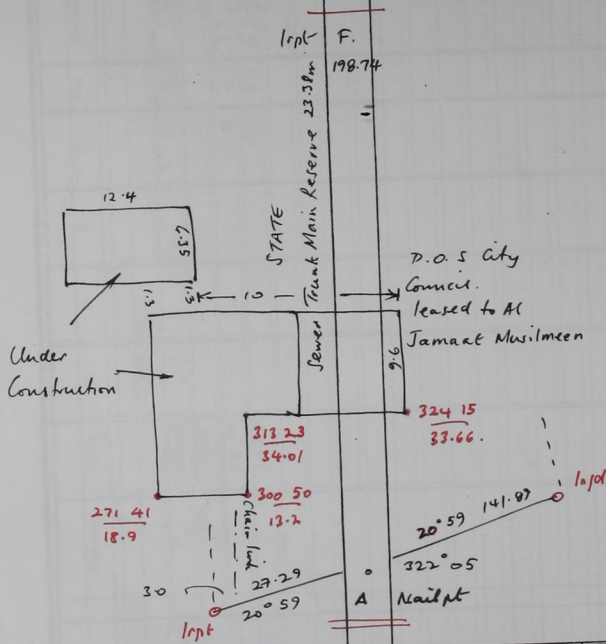 Irpt F.
198.74
Sewer Trunk Main Reserve 23.38m
STATE
12.4
6.35
1.3
1.3
10
D.O.S City
Council
leased to Al
Jamaat Musilmeen
9.6
Under
Construction
324 15
33.66.
313 23
34.01
300 50
13.2
271 41
18.9
Chain link
30
27.29
20° 59
Irpt
20° 59 141.87
322° 05
A Nail pt